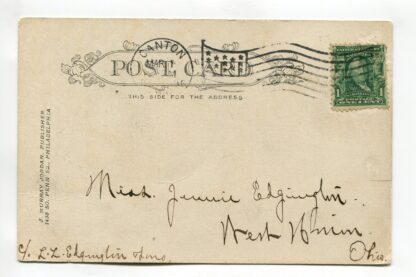 CANTON
MAR 1
POST CARD
THIS SIDE FOR THE ADDRESS.
J. MURRAY JORDAN, PUBLISHER
PENN SQ. PHILADELPHIA
1
Miss. Jennie Edgington.
West Union.
Ohio.
c/o L.L. Edgington